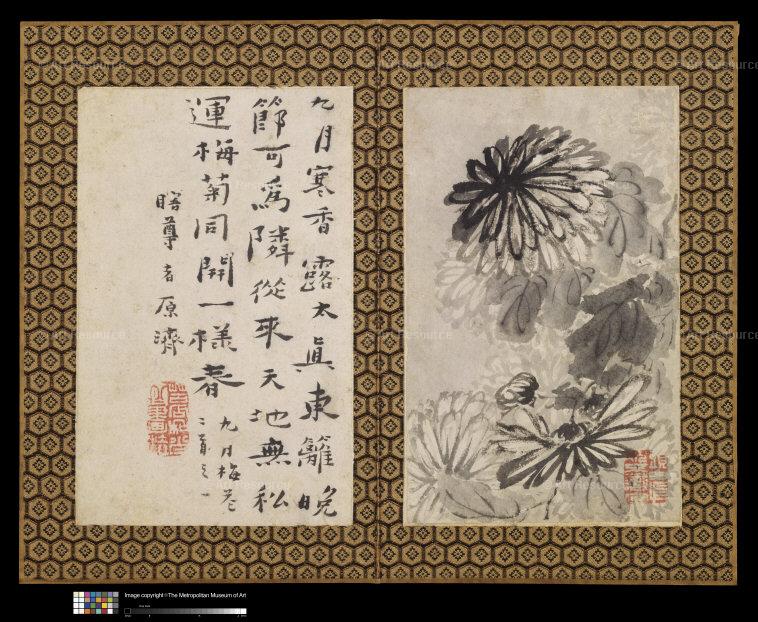 九月寒香露太真東籬晚
節可爲隣從來天地無私
運梅菊同開一樣春
九月梅花
二首之一
瞎尊者原濟
Image copyright © The Metropolitan Museum of Art